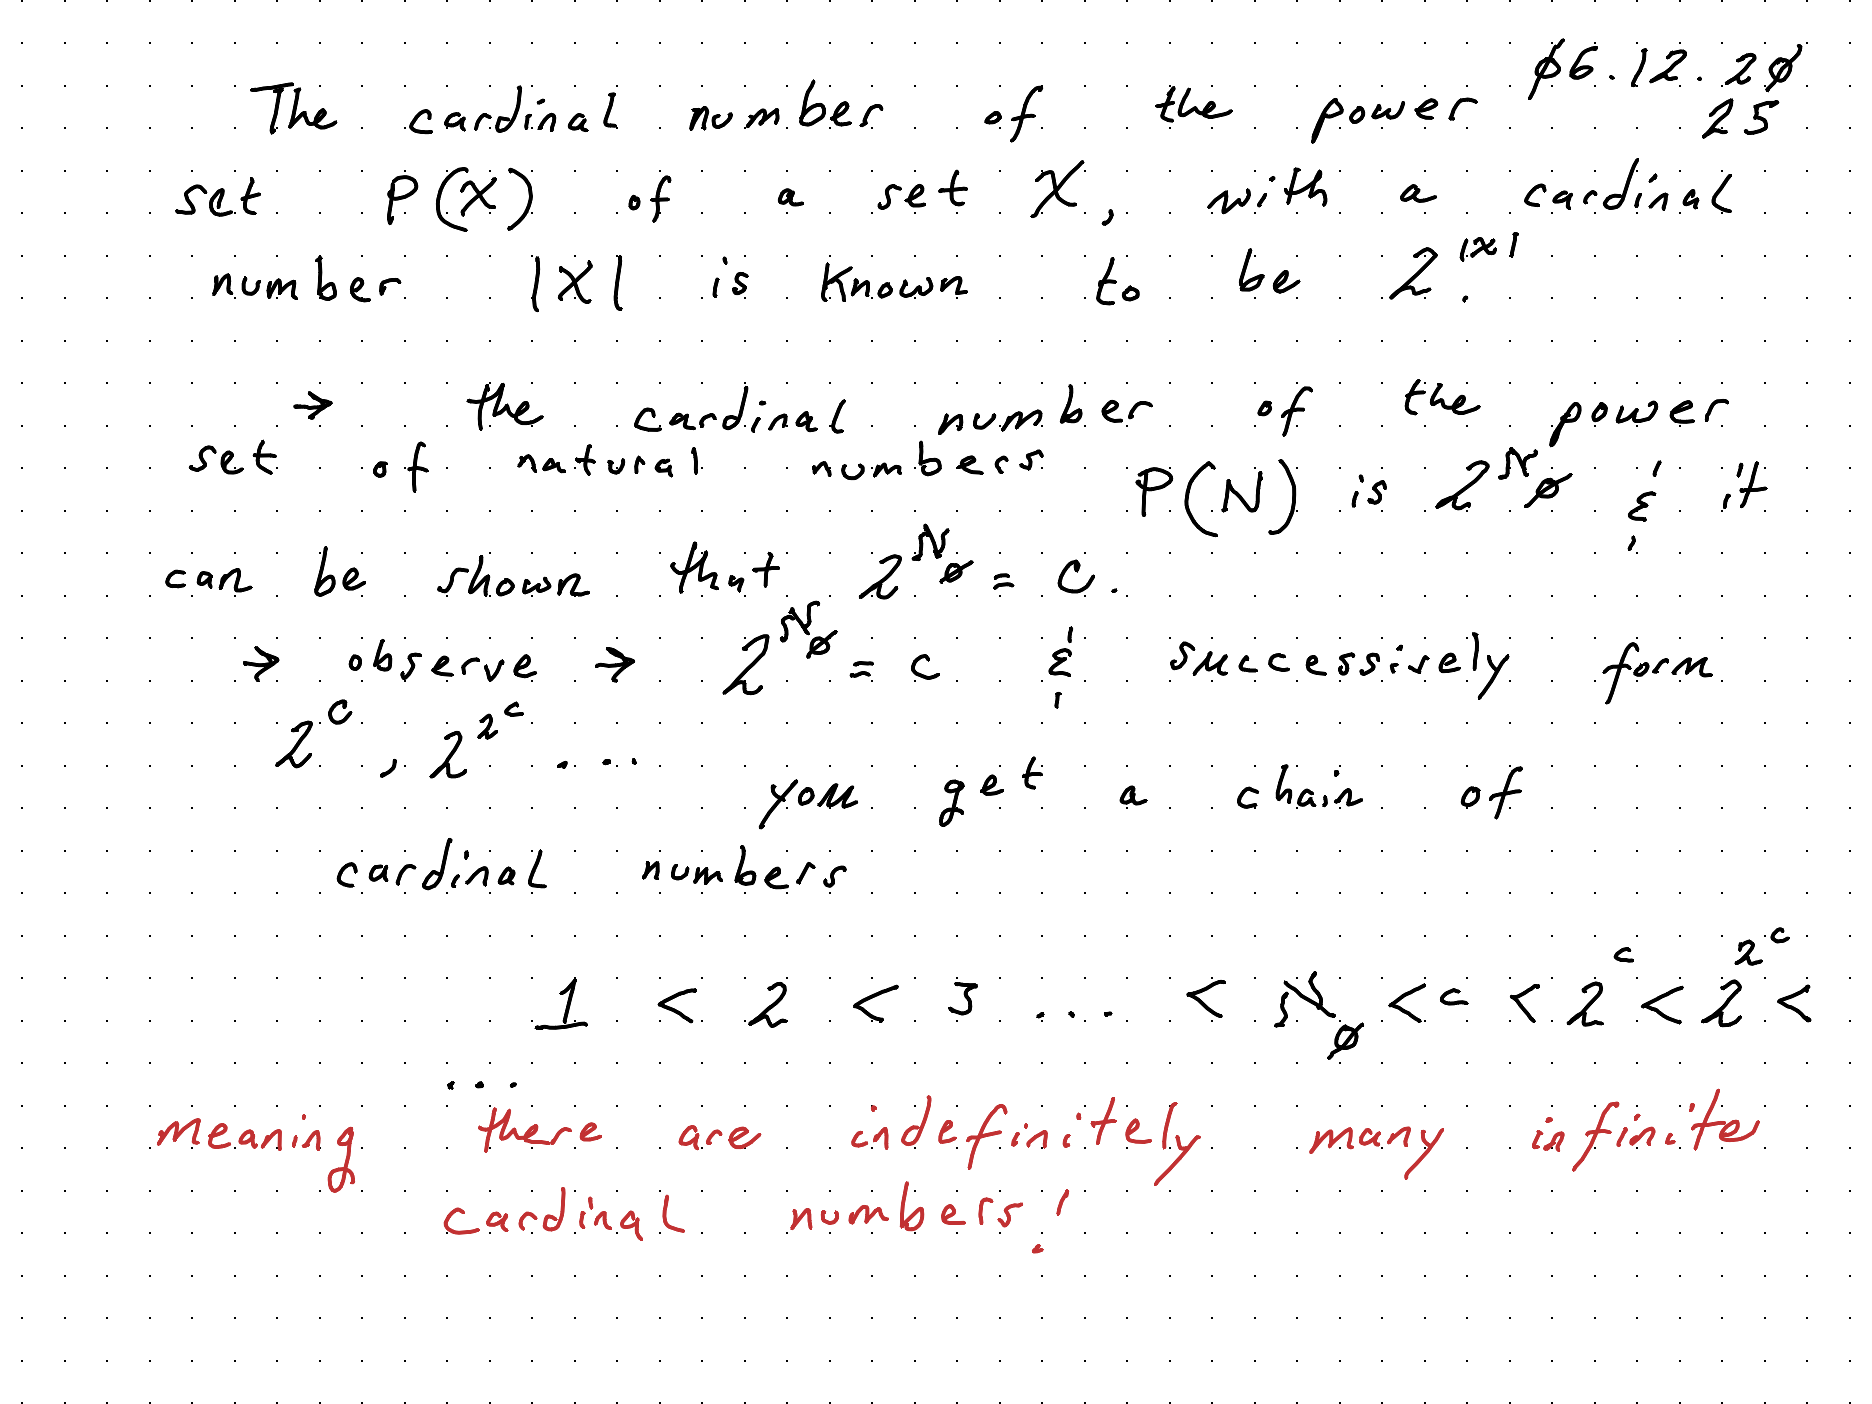 ø6.12.2ø
25
The cardinal number of the power
set P(X) of a set X, with a cardinal
number |X| is known to be 2^|X|.
→ the cardinal number of the power
set of natural numbers P(N) is 2^ℵø & it
can be shown that 2^ℵø = c.
→ observe → 2^ℵø = c & successively form
2^c, 2^2^c ...
you get a chain of
cardinal numbers
1 < 2 < 3 ... < ℵø < c < 2^c < 2^2^c <
...
meaning there are indefinitely many infinite
cardinal numbers!